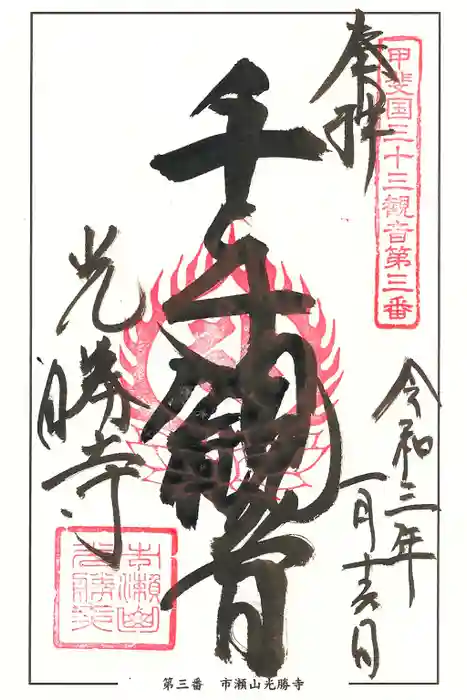 甲斐国三十三観音第三番
奉拝
令和三年
一月十六日
千手観音
光勝寺
市瀬山
光勝寺
第三番 市瀬山光勝寺